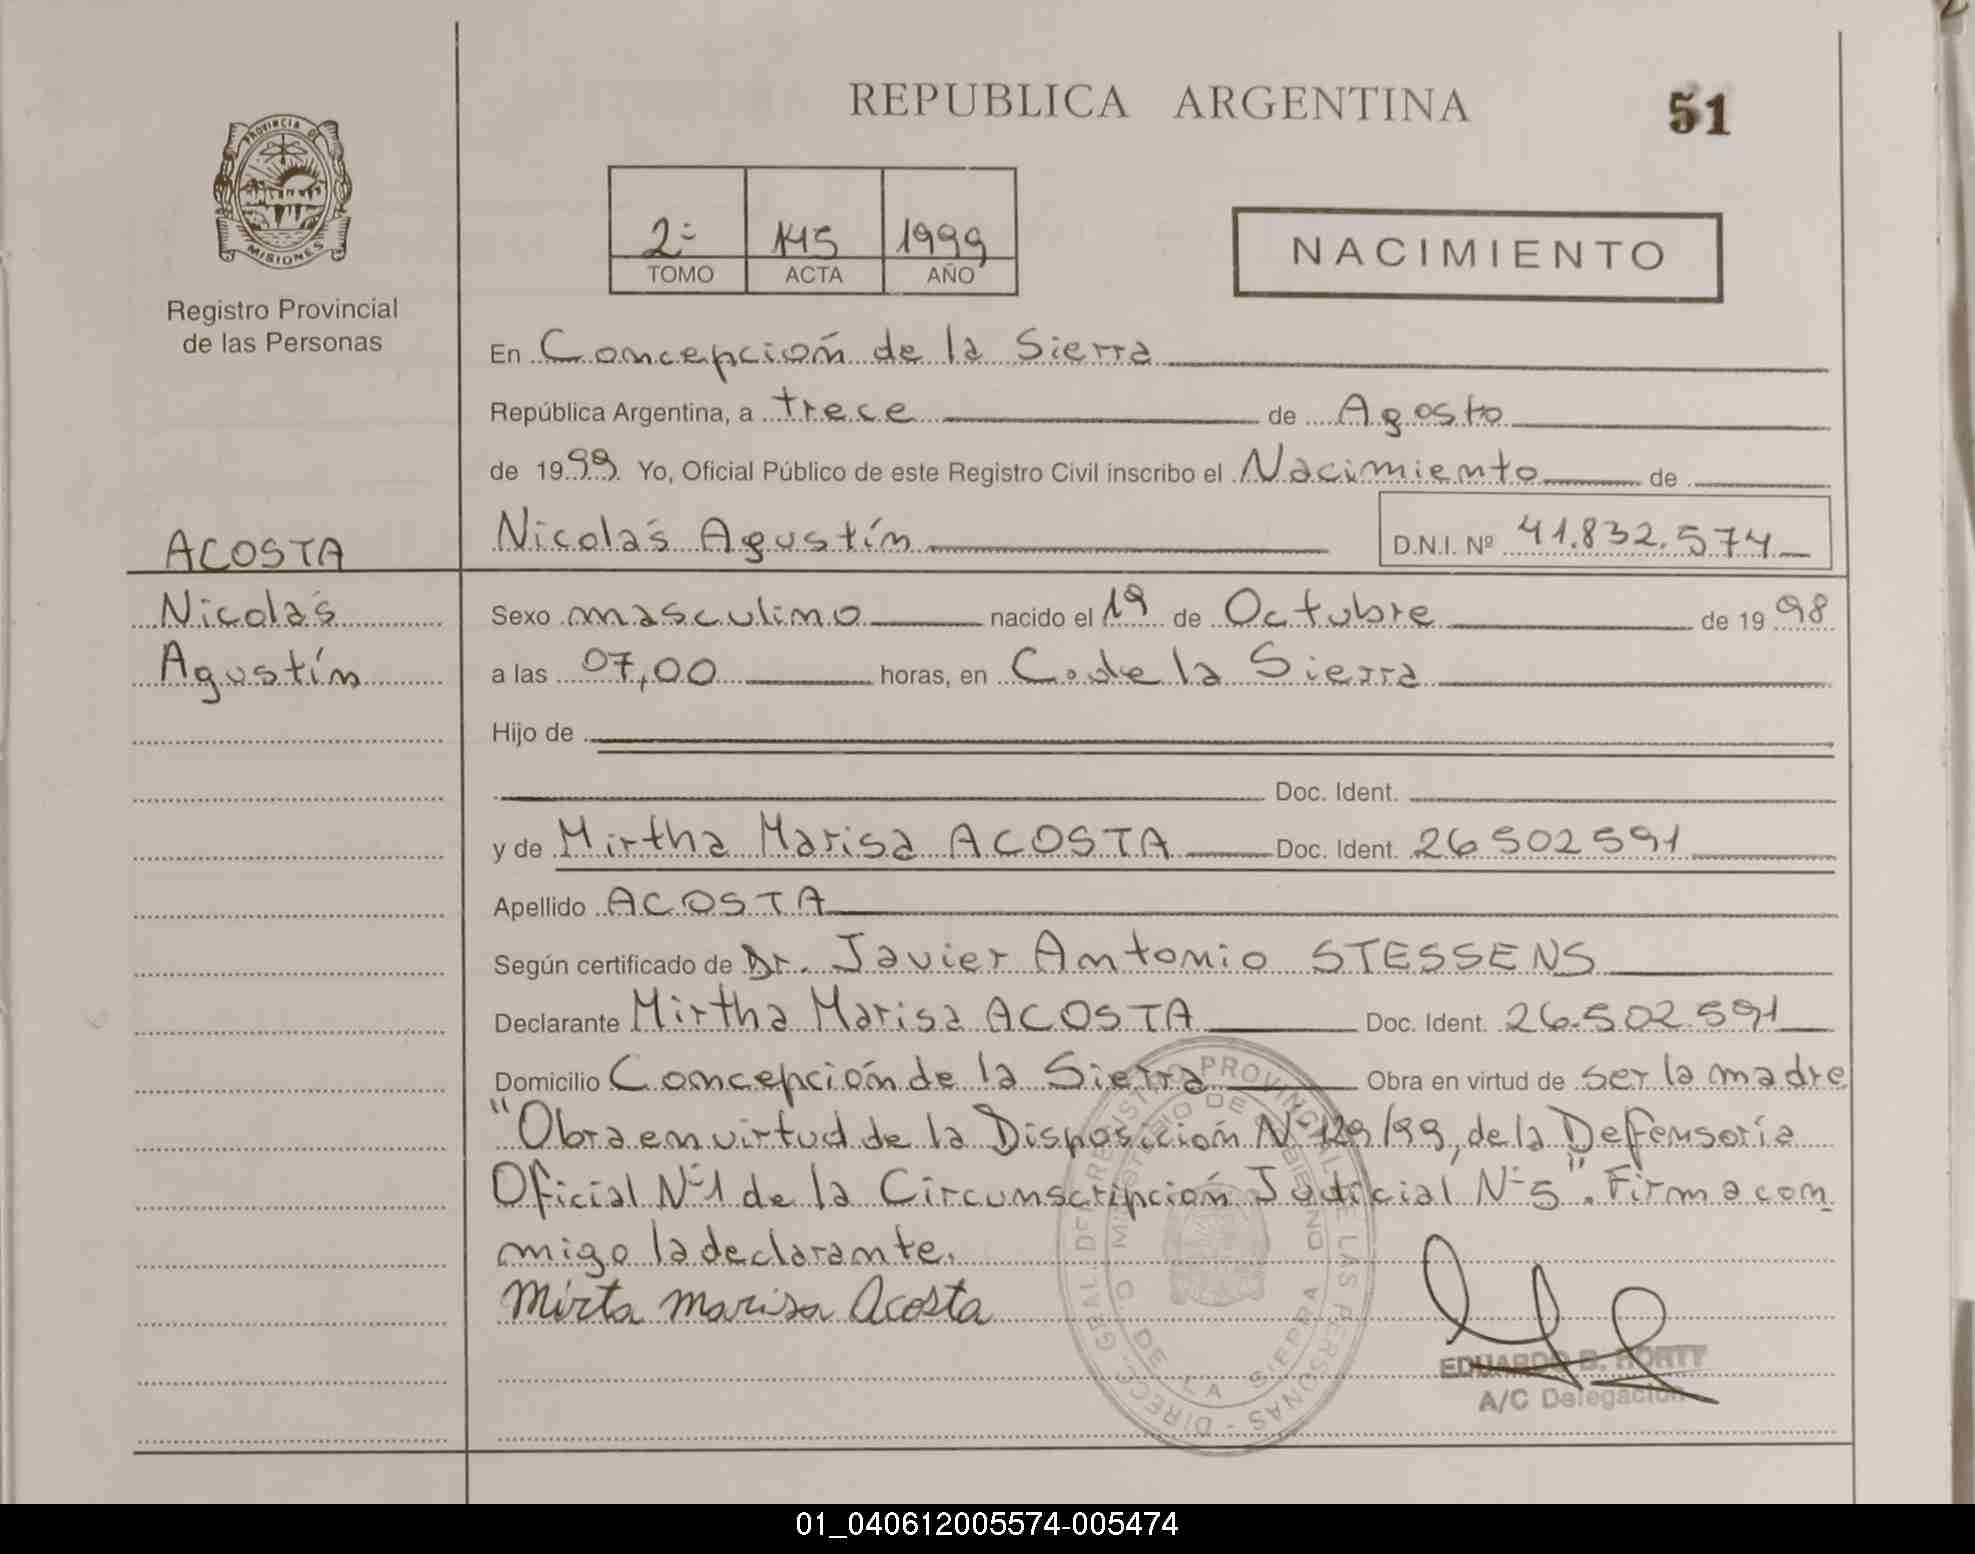 REPUBLICA ARGENTINA
51
PROVINCIA DE
MISIONES
Registro Provincial
de las Personas
2º 145 1999
TOMO ACTA AÑO
NACIMIENTO
En Concepción de la Sierra
República Argentina, a trece de Agosto
de 1999 Yo, Oficial Público de este Registro Civil inscribo el Nacimiento de
ACOSTA
Nicolás Agustín D.N.I. Nº 41.832.574
Nicolás
Agustín
Sexo masculino nacido el 19 de Octubre de 1998
a las 07,00 horas, en C. de la Sierra
Hijo de
Doc. Ident.
y de Mirtha Marisa ACOSTA Doc. Ident. 26502591
Apellido ACOSTA
Según certificado de Dr. Javier Antonio STESSENS
Declarante Mirtha Marisa ACOSTA Doc. Ident. 26.502.591
Domicilio Concepción de la Sierra Obra en virtud de ser la madre
"Obra en virtud de la Disposición Nº 129/99, de la Defensoría
Oficial Nº 1 de la Circunscripción Judicial Nº 5". Firma con
migo la declarante.
Mirta Marisa Acosta
DIRECC. GRAL. DEL REGISTRO PROVINCIAL DE LAS PERSONAS -
MINISTERIO DE GOBIERNO
C. DE LA SIERRA
EDUARDO B. HORTT
A/C Delegación
01_040612005574-005474